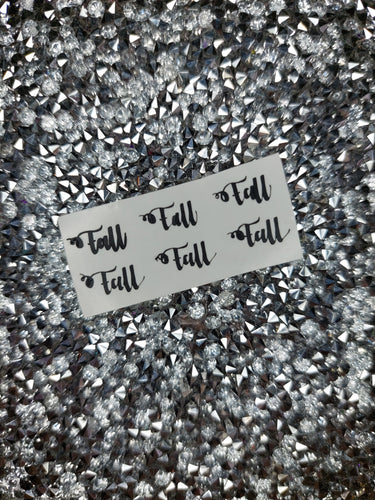 Fall Fall Fall
Fall Fall Fall